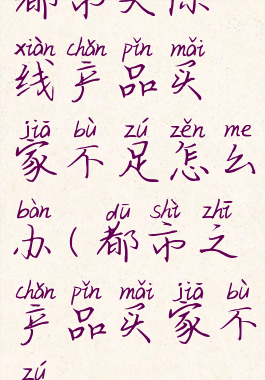 xiàn chǎn pǐn mǎi
线产品买
jiā bù zú zěn me
家不足怎么
bàn dū shì zhī
办(都市之
chǎn pǐn mǎi jiā bù
产品买家不
zú